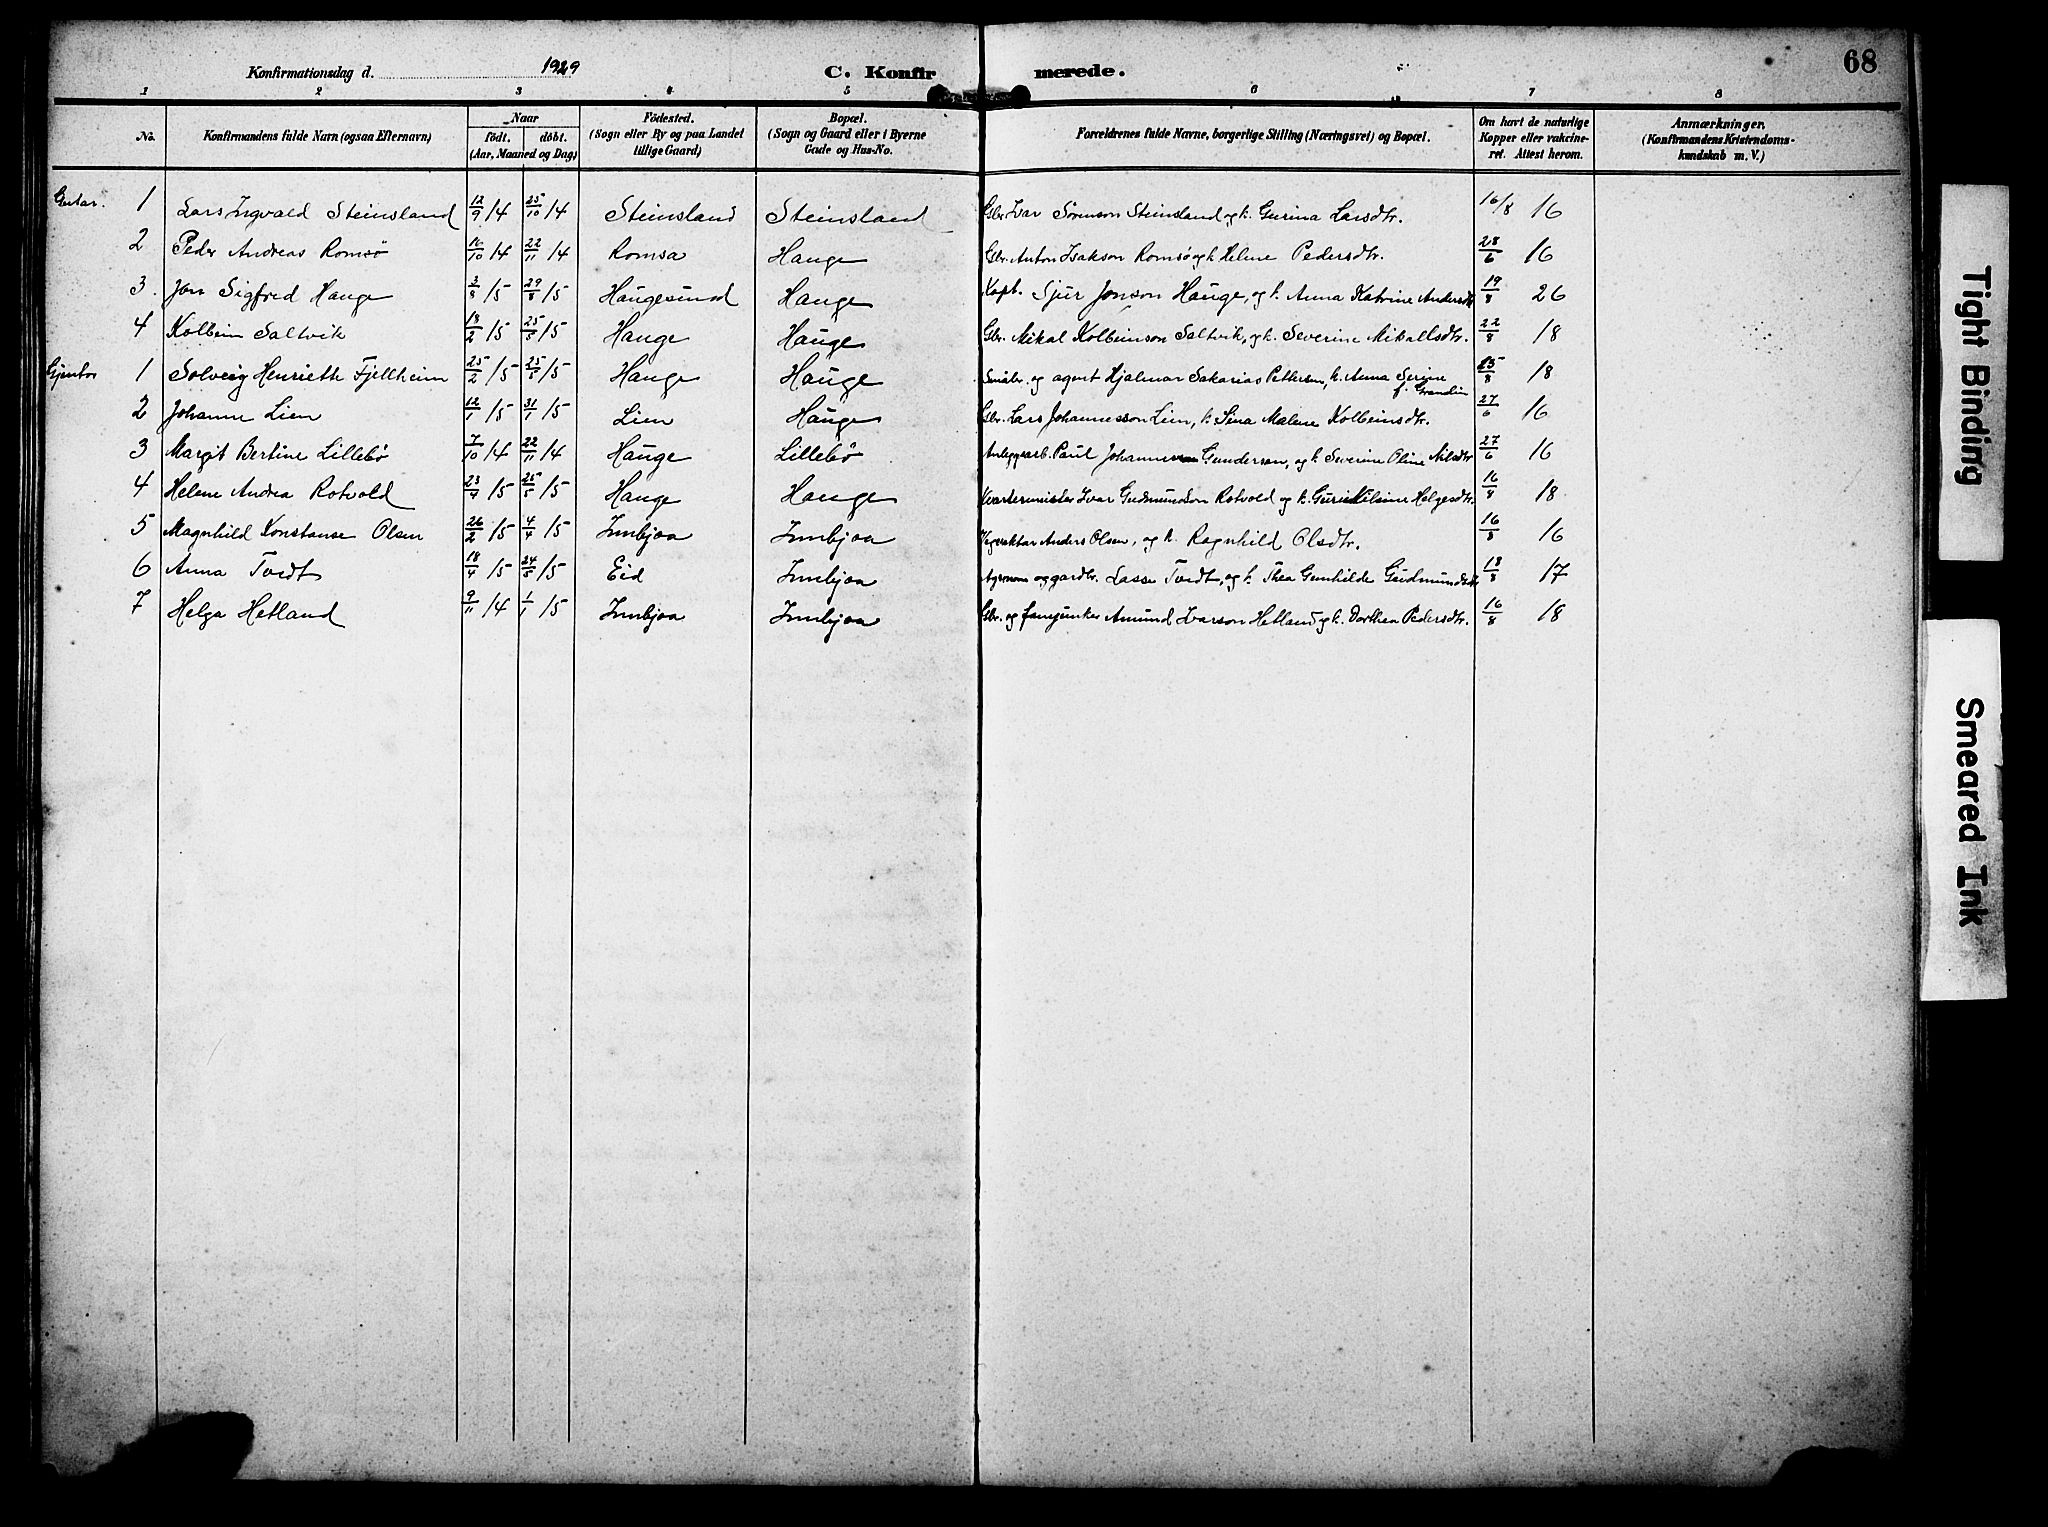 Konfirmationsdag d. 1929 C. Konfirmerede. 68
1 2 3 4 5 6 7 8
No. Konfirmandens fulde Navn (ogsaa Efternavn) Naar födt. döbt. (Aar, Maaned og Dag) Födested. (Sogn eller By og paa Landet tillige Gaard) Bopæl. (Sogn og Gaard eller i Byerne Gade og Hus-No. Forældrenes fulde Navne, borgerlige Stilling (Næringsvei) og Bopæl. Om havt de naturlige Kopper eller vakcineret. Attest herom. Anmærkninger. (Konfirmandens Kristendomskundskab m. V.)
Gutar. 1 Lars Ingvald Steinsland 12/9 14 25/10 14 Steinsland Steinsland Gbr. Ivar Sörenson Steinsland og k. Gurina Larsdtr. 16/8 16
2 Peder Andreas Romsö 10/10 14 22/11 14 Romsa Hauge Gbr. Anton Isakson Romsö og k. Helene Pedersdtr. 28/6 16
3. Jon Sigfred Hauge 3/8 15 29/8 15 Haugesund Hauge Kapt. Sjur Jonson Hauge, og k. Anna Katrine Andersdtr 19/8 26
4 Kolbein Saltvik 18/2 15 25/5 15 Hauge Hauge Gbr. Mikal Kolbeinson Saltvik, og k. Severine Mikallsdtr. 22/8 18
Gjentor 1 Solveig Henriette Fjellheim 25/2 15 25/5 15 Hauge Hauge Småbr. og agent Hjalmar Sakarias Pettersen, k. Anna Serine f. Grandin 25/8 18
2 Johanne Lien 12/1 15 31/1 15 Lien Hauge Gbr. Lars Johannesson Lien, k. Sina Malene Kolbeinsdtr. 27/6 16
3 Margit Bertine Lillebö 7/10 14 22/11 14 Hauge Lillebö Anleggsarb. Paul Johannesen Gunderson, og k. Severine Oline Nilsdtr 27/6 16
4 Helene Andrea Rotvold 23/4 15 25/5 15 Hauge Hauge Kvartermeister Ivar Gudmundson Rotvold og k. Helgesdtr. 16/8 18
5 Magnhild Konstanse Olsen 26/2 15 4/4 15 Innbjoa Innbjoa Vegvaktar Anders Olsen, og k. Ragnhild Olsdtr. 16/8 16
6 Anna Tvedt 18/4 15 24/5 15 Eid Innbjoa Agronom og gardbr. Lasse Tvedt, og k. Thea Gunhilde Gudmundsdtr 18/8 17
7 Helga Hetland 9/11 14 1/1 15 Innbjoa Innbjoa Gbr. og fanejunker Amund Ivarson Hetland og k. Dorthea Pedersdtr. 16/8 18
Tight Binding
Smeared Ink